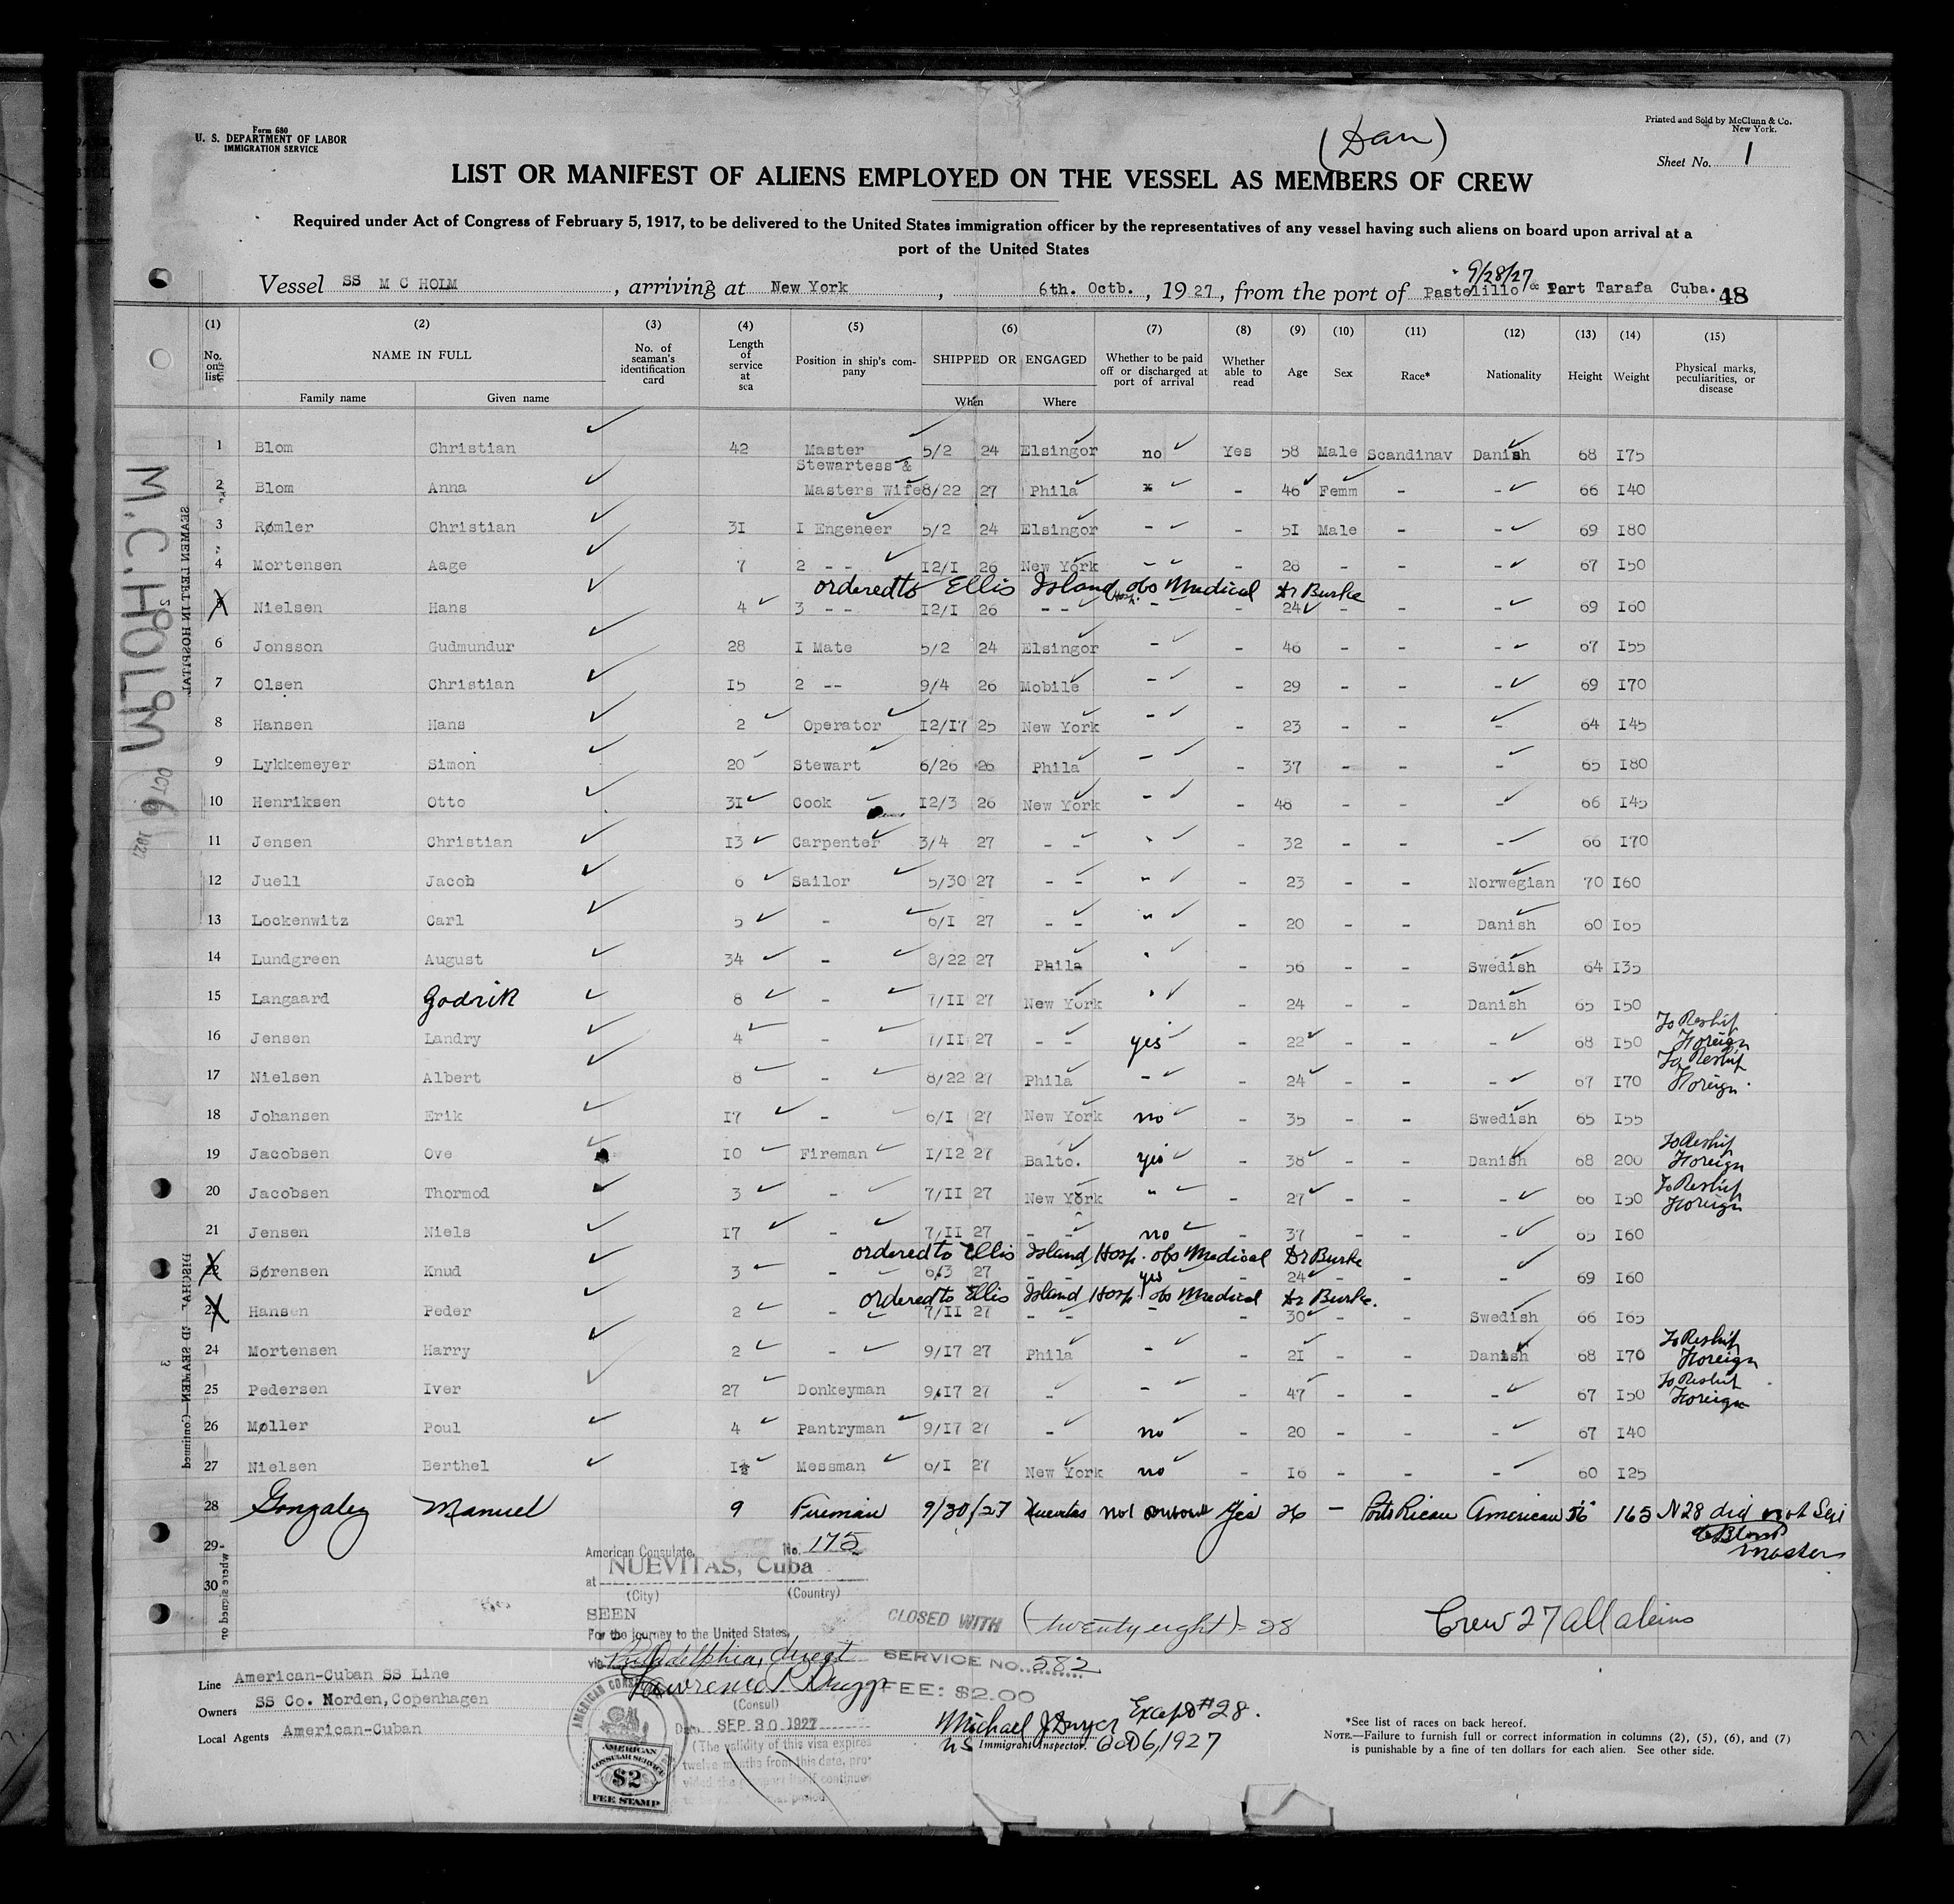 Form 680
U. S. DEPARTMENT OF LABOR
IMMIGRATION SERVICE
Printed and Sold by McClunn & Co.
New York.
(Dan)
Sheet No. 1
LIST OR MANIFEST OF ALIENS EMPLOYED ON THE VESSEL AS MEMBERS OF CREW
Required under Act of Congress of February 5, 1917, to be delivered to the United States immigration officer by the representatives of any vessel having such aliens on board upon arrival at a
port of the United States
9/28/27
Vessel SS M C HOLM, arriving at New York, 6th. Octb., 1927, from the port of Pastelillo & Part Tarafa Cuba. 48
(1) (2) (3) (4) (5) (6) (7) (8) (9) (10) (11) (12) (13) (14) (15)
No. on list NAME IN FULL Family name Given name No. of seaman's identification card Length of service at sea Position in ship's company SHIPPED OR ENGAGED When Where Whether to be paid off or discharged at port of arrival Whether able to read Age Sex Race* Nationality Height Weight Physical marks, peculiarities, or disease
1 Blom Christian 42 Master 5/2 24 Elsingor no Yes 58 Male Scandinav Danish 68 I75
Stewartess &
2 Blom Anna Masters Wife 8/22 27 Phila - 46 Femm - - 66 I40
3 Rømler Christian 3I I Engeneer 5/2 24 Elsingor - - 5I Male - - 69 I80
4 Mortensen Aage 7 2 - - I2/I 26 New York - - - 28 - - - 67 I50
ordered to Ellis Island Hosp. obs Medical Dr Burke
5 Nielsen Hans 4 3 - - I2/I 26 - - - - 24 - - - 69 I60
6 Jonsson Gudmundur 28 I Mate 5/2 24 Elsingor - - 46 - - - 67 I55
7 Olsen Christian I5 2 -- 9/4 26 Mobile - - 29 - - - 69 I70
8 Hansen Hans 2 Operator I2/I7 25 New York - - 23 - - - 64 I45
9 Lykkemeyer Simon 20 Stewart 6/26 26 Phila - - 37 - - - 65 I80
10 Henriksen Otto 3I Cook I2/3 26 New York - - 48 - - - 66 I45
11 Jensen Christian I3 Carpenter 3/4 27 - - - - 32 - - - 66 I70
12 Juell Jacob 6 Sailor 5/30 27 - - - - 23 - - Norwegian 70 I60
13 Lockenwitz Carl 5 - 6/I 27 - - - - 20 - - Danish 60 I65
14 Lundgreen August 34 - 8/22 27 Phila - - 56 - - Swedish 64 I35
15 Langaard Godrik 8 - 7/II 27 New York - - 24 - - Danish 65 I50
16 Jensen Landry 4 - 7/II 27 - - yes - 22 - - - 68 I50 To Reship Foreign
17 Nielsen Albert 8 - 8/22 27 Phila - - 24 - - - 67 I70 To Reship Foreign.
18 Johansen Erik I7 - 6/I 27 New York no - 35 - - Swedish 65 I55
19 Jacobsen Ove I0 Fireman I/I2 27 Balto. yes - 38 - - Danish 68 200 To Reship Foreign
20 Jacobsen Thormod 3 - 7/II 27 New York - - 27 - - - 66 I50 To Reship Foreign
21 Jensen Niels I7 - 7/II 27 - - no - 37 - - - 65 I60
ordered to Ellis Island Hosp. obs Medical Dr Burke
22 Sørensen Knud 3 - 6/3 27 - - yes - 24 - - - 69 I60
ordered to Ellis Island Hosp. obs Medical Dr Burke.
23 Hansen Peder 2 - 7/II 27 - - - - 30 - - Swedish 66 I65
24 Mortensen Harry 2 - 9/I7 27 Phila - - 2I - - Danish 68 I70 To Reship Foreign
25 Pedersen Iver 27 Donkeyman 9/I7 27 - - - 47 - - - 67 I50 To Reship Foreign
26 Møller Poul 4 Pantryman 9/I7 27 - no - 20 - - - 67 I40
27 Nielsen Berthel I½ Messman 6/I 27 New York no - I6 - - - 60 I25
28 Gonzalez Manuel 9 Fireman 9/30/27 Nuevitas not Yes 26 - Porto Rican American 5'6" 165 N28 did not Sail
C Blom
Master
29
30
American Consulate, No. 175
at NUEVITAS, Cuba
(City) (Country)
SEEN
For the journey to the United States,
via Philadelphia, direct
CLOSED WITH (twenty eight) = 28
Crew 27 all aleins
SERVICE NO. 582
FEE: $2.00
(Consul)
Date SEP 30 1927
(The validity of this visa expires
twelve months from this date, pro-
vided the passport itself continues
AMERICAN
CONSULAR SERVICE
$2
FEE STAMP
Line American-Cuban SS Line
Owners SS Co. Norden, Copenhagen
Local Agents American-Cuban
Except #28.
Michael J Dwyer
US Immigrant Inspector. Oct 6, 1927
*See list of races on back hereof.
NOTE.—Failure to furnish full or correct information in columns (2), (5), (6), and (7)
is punishable by a fine of ten dollars for each alien. See other side.
M.C. HOLM
OCT 6 1927
SEAMEN LEFT IN HOSPITAL